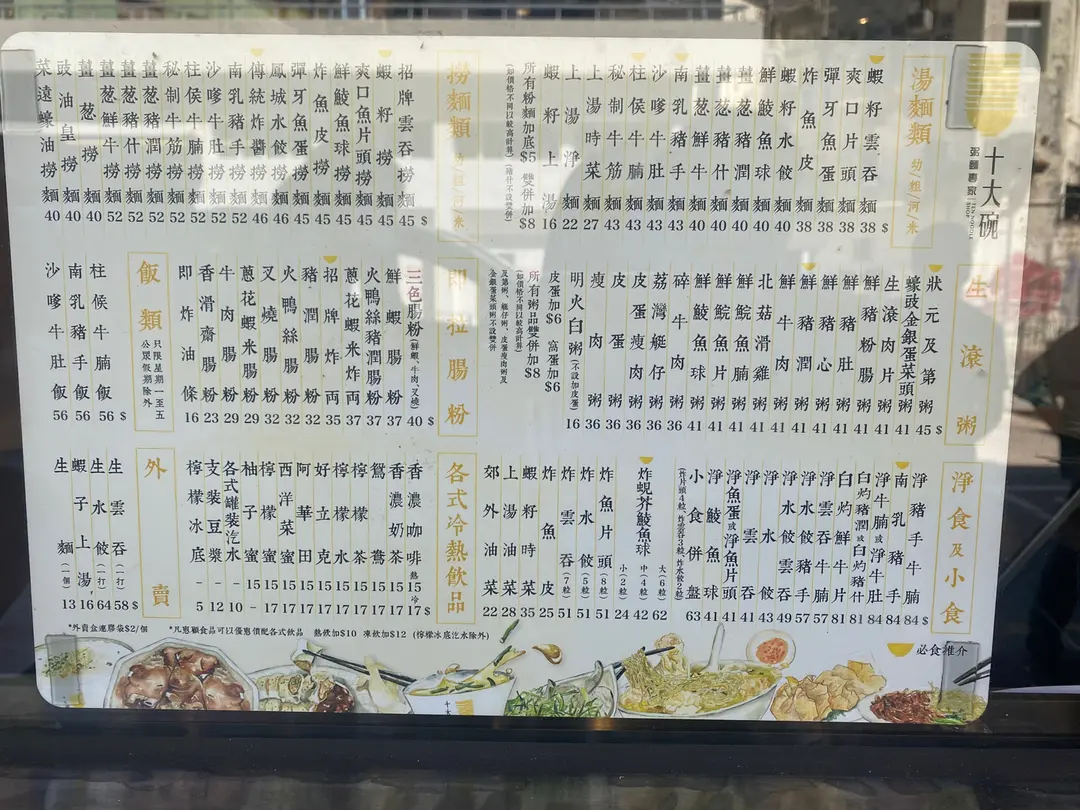 十大碗
粥麵專家
湯麵類 幼/粗/河/米
蝦籽雲吞麵 38 $
爽口片頭麵 38
彈牙魚蛋麵 38
炸魚皮麵 38
蝦籽水餃麵 40
鮮鯪魚球麵 40
薑葱豬潤麵 40
薑葱豬什麵 40
薑葱鮮牛麵 40
南乳豬手麵 43
沙嗲牛肚麵 43
柱侯牛腩麵 43
秘制牛筋麵 43
上湯時菜麵 27
上湯淨麵 22
蝦籽上湯 16
所有粉麵加底$5 雙併加$8
(如價格不同以較高計算)(豬什不設雙併)
撈麵類 幼/粗/河/米
招牌雲吞撈麵 45 $
蝦籽撈麵 45
爽口魚片頭撈麵 45
鮮鯪魚球撈麵 45
炸魚皮撈麵 45
彈牙魚蛋撈麵 45
鳳城水餃撈麵 46
傳統炸醬撈麵 46
南乳豬手撈麵 52
沙嗲牛肚撈麵 52
柱侯牛腩撈麵 52
秘制牛筋撈麵 52
薑葱豬潤撈麵 52
薑葱豬什撈麵 52
薑葱鮮牛撈麵 52
薑葱撈麵 40
豉油皇撈麵 40
菜遠蠔油撈麵 40
生滾粥
狀元及第粥 45 $
蠔豉金銀蛋菜頭粥 41
生滾肉片粥 41
鮮豬粉腸粥 41
鮮豬肚粥 41
鮮豬心粥 41
鮮豬潤粥 41
鮮牛肉粥 41
北菇滑雞粥 41
鮮鯇魚腩粥 41
鮮鯇魚片粥 41
鮮鯪魚球粥 41
碎牛肉粥 36
荔灣艇仔粥 36
皮蛋瘦肉粥 36
皮蛋粥 36
瘦肉粥 36
明火白粥(不設加皮蛋) 16
皮蛋加$6 窩蛋加$6
所有粥品雙併加$8
(如價格不同以較高計算)
及第粥、艇仔粥、皮蛋瘦肉粥及
金銀蛋菜頭粥不設雙併
即拉腸粉
三色腸粉(鮮蝦、牛肉、叉燒) 40 $
鮮蝦腸粉 37
火鴨絲豬潤腸粉 37
蔥花蝦米炸両 37
招牌炸両 35
豬潤腸粉 32
火鴨絲腸粉 32
叉燒腸粉 32
蔥花蝦米腸粉 29
牛肉腸粉 29
香滑齋腸粉 23
即炸油條 16
飯類
只限星期一至五
公眾假期除外
柱侯牛腩飯 56 $
南乳豬手飯 56
沙嗲牛肚飯 56
淨食及小食
淨豬手牛腩 84 $
南乳豬手 84
淨牛腩或淨牛肚 84
白灼豬潤或白灼豬什 81
白灼鮮牛 81
淨雲吞牛腩 57
淨水餃豬手 57
淨水餃雲吞 49
淨水餃 43
淨雲吞 41
淨魚蛋或淨魚片頭 41
淨鯪魚球 41
小食併盤 63
(炸片頭4粒、炸雲吞3粒、炸水餃2粒)
炸蜆芥鯪魚球
大(6粒) 62
中(4粒) 42
小(2粒) 24
炸魚片頭(8粒) 51
炸水餃(5粒) 51
炸雲吞(7粒) 51
炸魚皮 25
蝦籽時菜 35
上湯油菜 28
郊外油菜 22
各式冷熱飲品
香濃咖啡 熱15 冷17 $
香濃奶茶 15 17
鴛鴦 15 17
檸檬茶 15 17
檸檬水 15 17
好立克 15 17
阿華田 15 17
西洋菜蜜 15 17
檸檬蜜 15 17
柚子蜜 15 –
各式罐裝汽水 – 10
支裝豆漿 – 12
檸檬冰底 – 5
外賣
生雲吞(一打) 58 $
生水餃(一打) 64
蝦子上湯 16
生麵(一個) 13
*外賣盒連膠袋$2/個
*凡惠顧食品可以優惠價配各式飲品 熱飲加$10 凍飲加$12 (檸檬冰底汽水除外)
必食推介